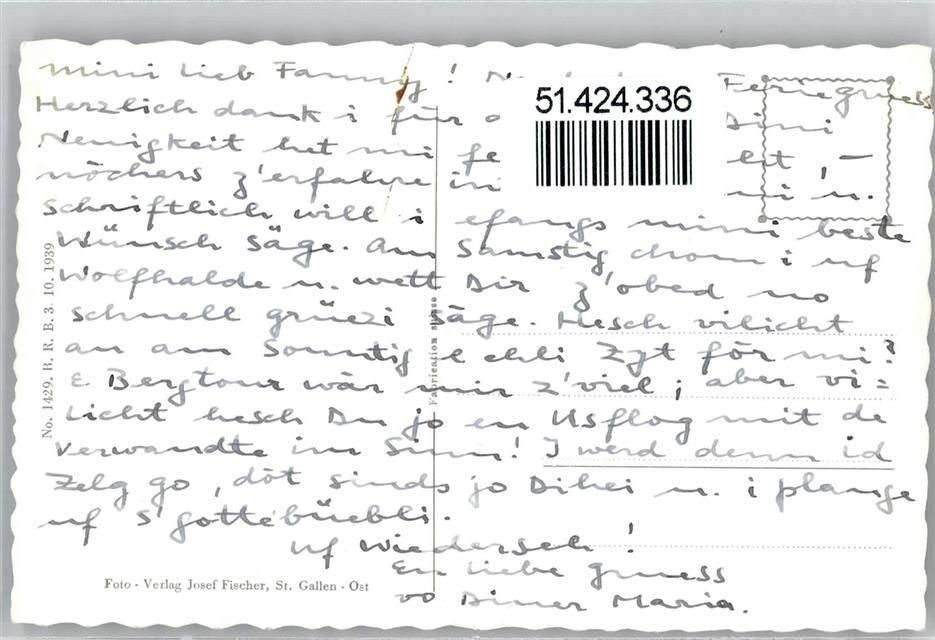 mini lieb Fanny! Feriegruess
Herzlich dank i für Dini
Neuigkeit het mi fe
nöchers z'erfahre in mi u.
schriftlich will i efangs mini beste
Wünsch säge. Am Samstig chom i uf
Wolfhalde u. wett Dir z'obed no
schnell grüezi säge. Hesch vilicht
au am Sonntig e chli Zyt för mi?
E Bergtour wär mir z'viel; aber vi=
licht hesch Du jo en Usflog mit de
Verwandte im Sinn! I werd denn id
Zelg go, döt sinds jo Dihei u. i plange
uf s'gottebüebli.
Uf Wiederseh!
En liebe gruess
vo Diner Maria.
51.424.336
No. 1429. B. R. B. 3. 10. 1939
Fabrication suisse
Foto - Verlag Josef Fischer, St. Gallen - Ost